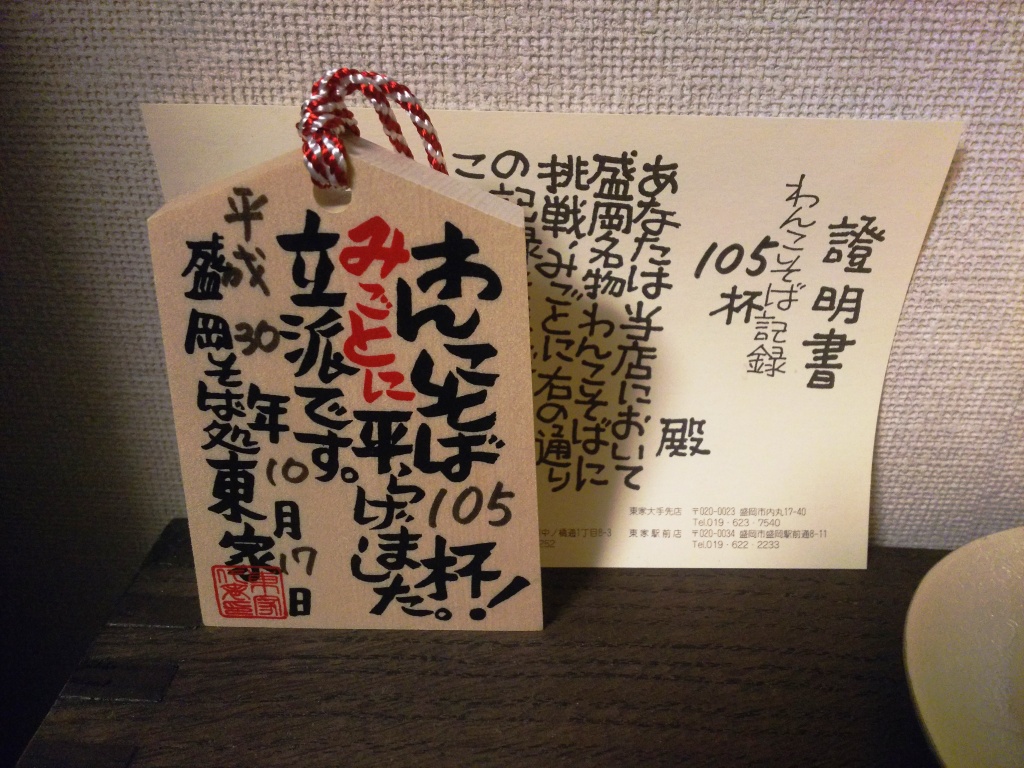 わんこそば105杯!
みごとに平らげました。
立派です。
平成30年10月17日
盛岡そば処東家
證明書
わんこそば記録
105杯
殿
あなたは当店において
盛岡名物わんこそばに
挑戦、みごとに右の通り
の記録
こ
東家大手先店 〒020-0023 盛岡市内丸17-40
Tel.019・623・7540
東家駅前店 〒020-0034 盛岡市盛岡駅前通8-11
Tel.019・622・2233
中ノ橋通1丁目8-3
252